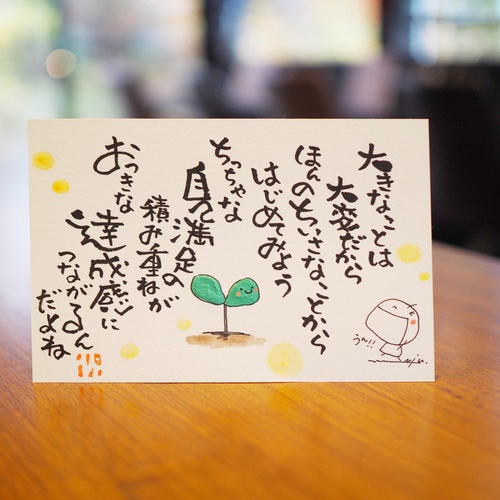 大きなことは
大変だから
ほんのちいさなことから
はじめてみよう
ちっちゃな
自己満足の
積み重ねが
おっきな
達成感に
つながるん
だよね
うん!!